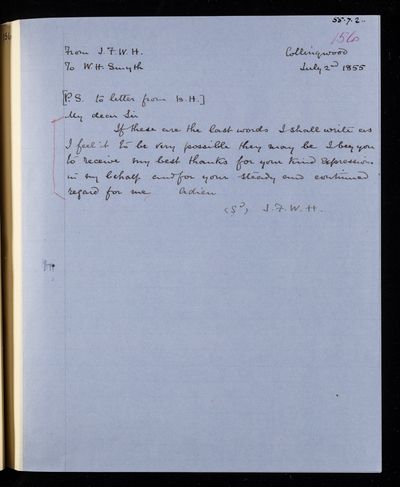 55.7.2.
156
156
From J. F. W. H. Collingwood
To W. H. Smyth July 2d 1855
[P.S. to letter from Is. H.]
My dear Sir
If these are the last words I shall write as
I feel it to be very possible they may be I beg you
to receive my best thanks for your kind expressions
in my behalf and for your steady and continued
regard for me Adieu
(Sd) J. F. W. H.